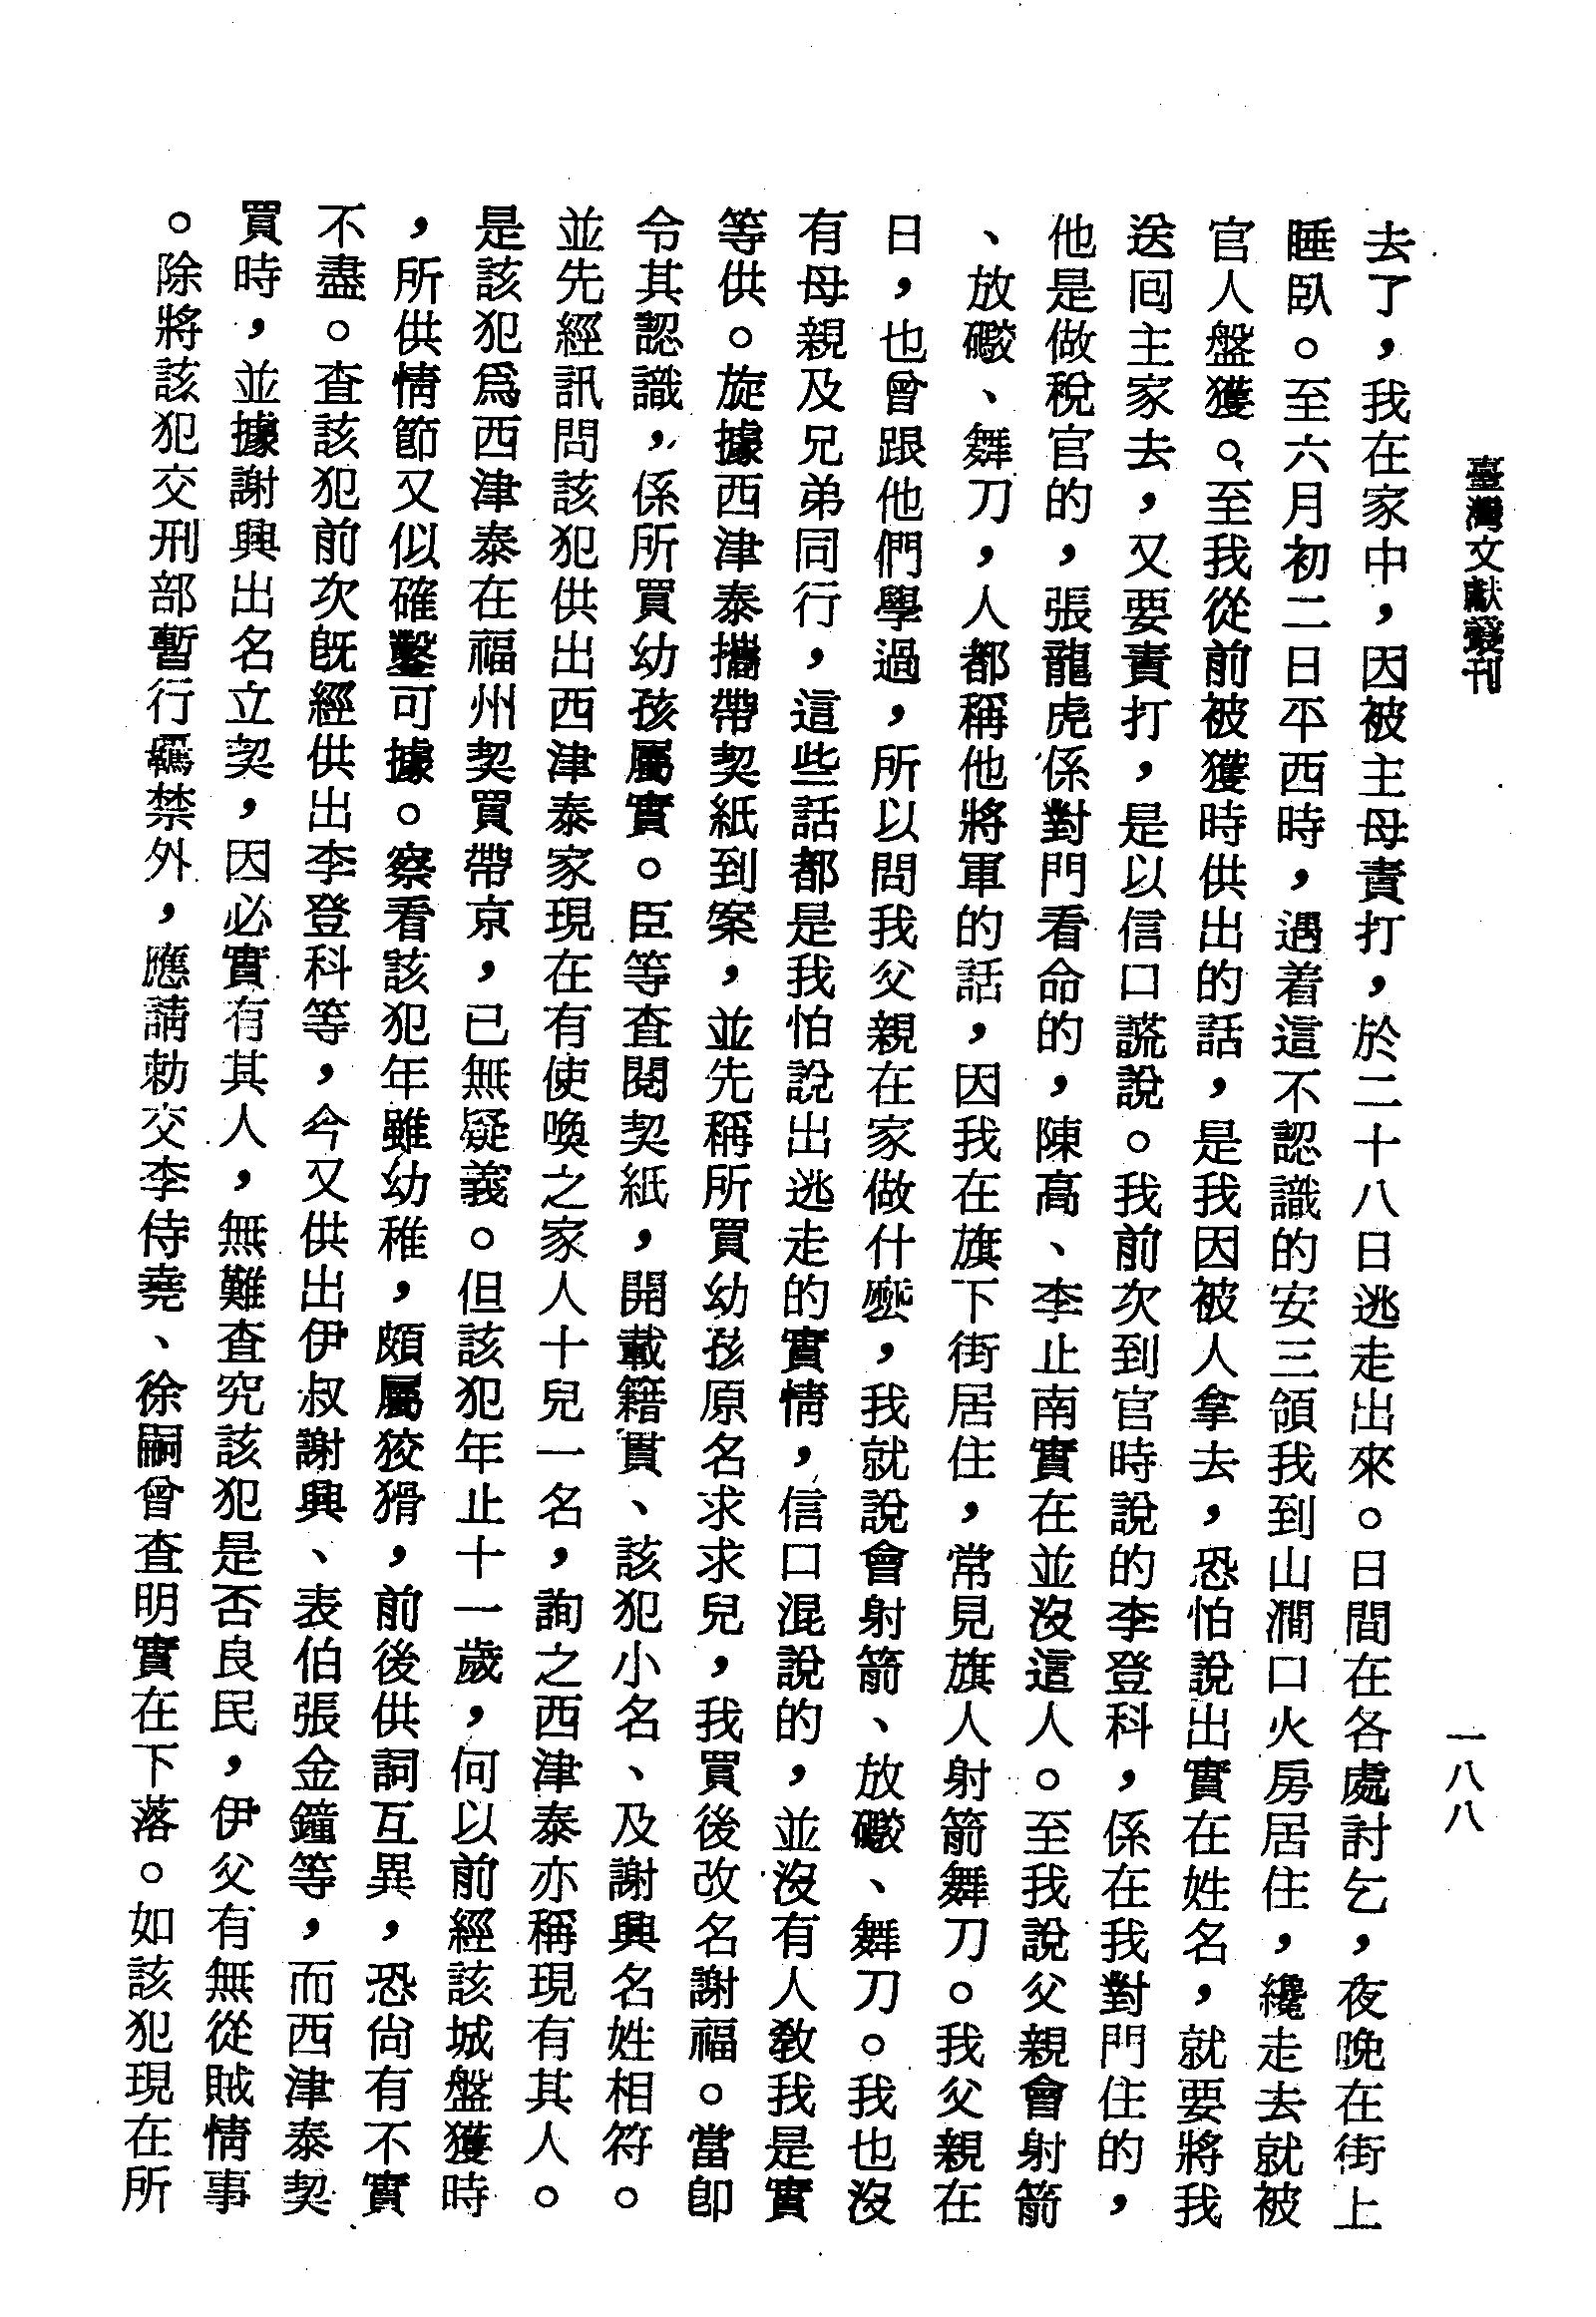 臺灣文獻叢刊
一八八
去了，我在家中，因被主母責打，於二十八日逃走出來。日間在各處討乞，夜晚在街上
睡臥。至六月初二日平西時，遇着這不認識的安三領我到山澗口火房居住，纔走去就被
官人盤獲。至我從前被獲時供出的話，是我因被人拿去，恐怕說出實在姓名，就要將我
送回主家去，又要責打，是以信口謊說。我前次到官時說的李登科，係在我對門住的，
他是做稅官的，張龍虎係對門看命的，陳高、李止南實在並沒這人。至我說父親會射箭
、放礮、舞刀，人都稱他將軍的話，因我在旗下街居住，常見旗人射箭舞刀。我父親在
日，也曾跟他們學過，所以問我父親在家做什麼，我就說會射箭、放礮、舞刀。我也沒
有母親及兄弟同行，這些話都是我怕說出逃走的實情，信口混說的，並沒有人敎我是實
等供。旋據西津泰攜帶契紙到案，並先稱所買幼孩原名求求兒，我買後改名謝福。當卽
令其認識，係所買幼孩屬實。臣等査閱契紙，開載籍貫、該犯小名、及謝興名姓相符。
並先經訊問該犯供出西津泰家現在有使喚之家人十兒一名，詢之西津泰亦稱現有其人。
是該犯爲西津泰在福州契買帶京，已無疑義。但該犯年止十一歲，何以前經該城盤獲時
，所供情節又似確鑿可據。察看該犯年雖幼稚，頗屬狡猾，前後供詞互異，恐尙有不實
不盡。査該犯前次旣經供出李登科等，今又供出伊叔謝興、表伯張金鐘等，而西津泰契
買時，並據謝興出名立契，因必實有其人，無難査究該犯是否良民，伊父有無從賊情事
。除將該犯交刑部暫行羈禁外，應請勅交李侍堯、徐嗣曾査明實在下落。如該犯現在所